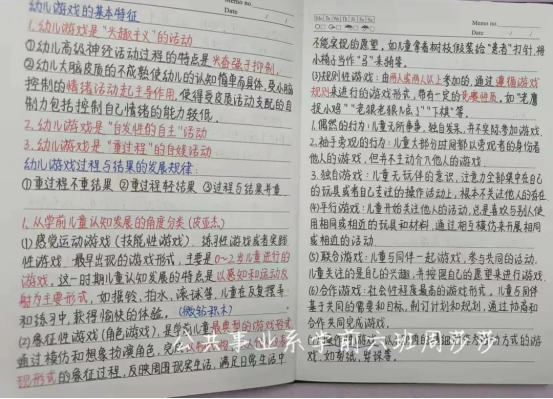 Memo no.
Date / /
幼儿游戏的基本特征
1. 幼儿游戏是"兴趣主义"的活动
①幼儿高级神经活动过程的特点是兴奋强于抑制。
②幼儿大脑皮质的不成熟使幼儿的认知简单而具体，受大脑
控制的情绪活动起主导作用，使得受皮质活动支配的自
制力包括控制自己情绪的能力较低。
2. 幼儿游戏是"自发性的自主"活动
3. 幼儿游戏是"重过程"的自娱活动
幼儿游戏过程与结果的发展规律：
①重过程不重结果 ②重过程轻结果 ③过程与结果并重
1. 从学前儿童认知发展的角度分类（皮亚杰）
(1)感觉运动游戏（技能性游戏）、练习性游戏或者实践
性游戏，最早出现的游戏形式，主要是0~2岁儿童进行的
游戏，这一时期儿童认知发展的特点是以感知和运动反
射为主要形式，如摇铃、拍水、滚球等，儿童在反复摆弄
和练习中，获得愉快的体验。
(2)象征性游戏（角色游戏），是学前儿童最典型的游戏形式
通过模仿和想象扮演角色，完
现形式的象征过程，反映周围现实生活，满足日常生活中
Mo Tu We Th Fr Sa Su
Memo no.
Date / /
不能实现的愿望，如儿童拿着树枝假装给"患者"打针，将
小椅子当作"马"来骑等。
(3)规则性游戏：由两人或两人以上参加的，通过遵循游戏
规则来进行的游戏形式，带有一定的竞赛性质，如"老鹰
捉小鸡""老狼老狼几点了""下棋"等。
1. 偶然的行为：儿童无所事事、独自发呆，并不实际参加游戏
2. 袖手旁观的行为：儿童大部分时间都以旁观者的身份看
他人的游戏，但并不主动介入他人的游戏
3. 独自游戏：儿童无玩伴的意识，注意力全部集中在自己
的玩具或者自己关注的操作活动上，根本不关注他人的存在
(4)平行游戏：儿童开始关注他人的活动，总是喜欢与别人使
用相同或相近的玩具和材料，通过相互模仿来开展相同
或相近的活动
(5)联合游戏：儿童与同伴一起游戏，参与共同的活动，
儿童关注的是自己的兴趣，并按照自己的愿望来进行游戏
(6)合作游戏：社会性程度最高的游戏形式，儿童与同伴
基于共同的需要和目标，制订计划和规划，通过协商和
合作共同完成游戏。
戏，如剪纸、串珠等。
公共事业系学前六班周莎莎